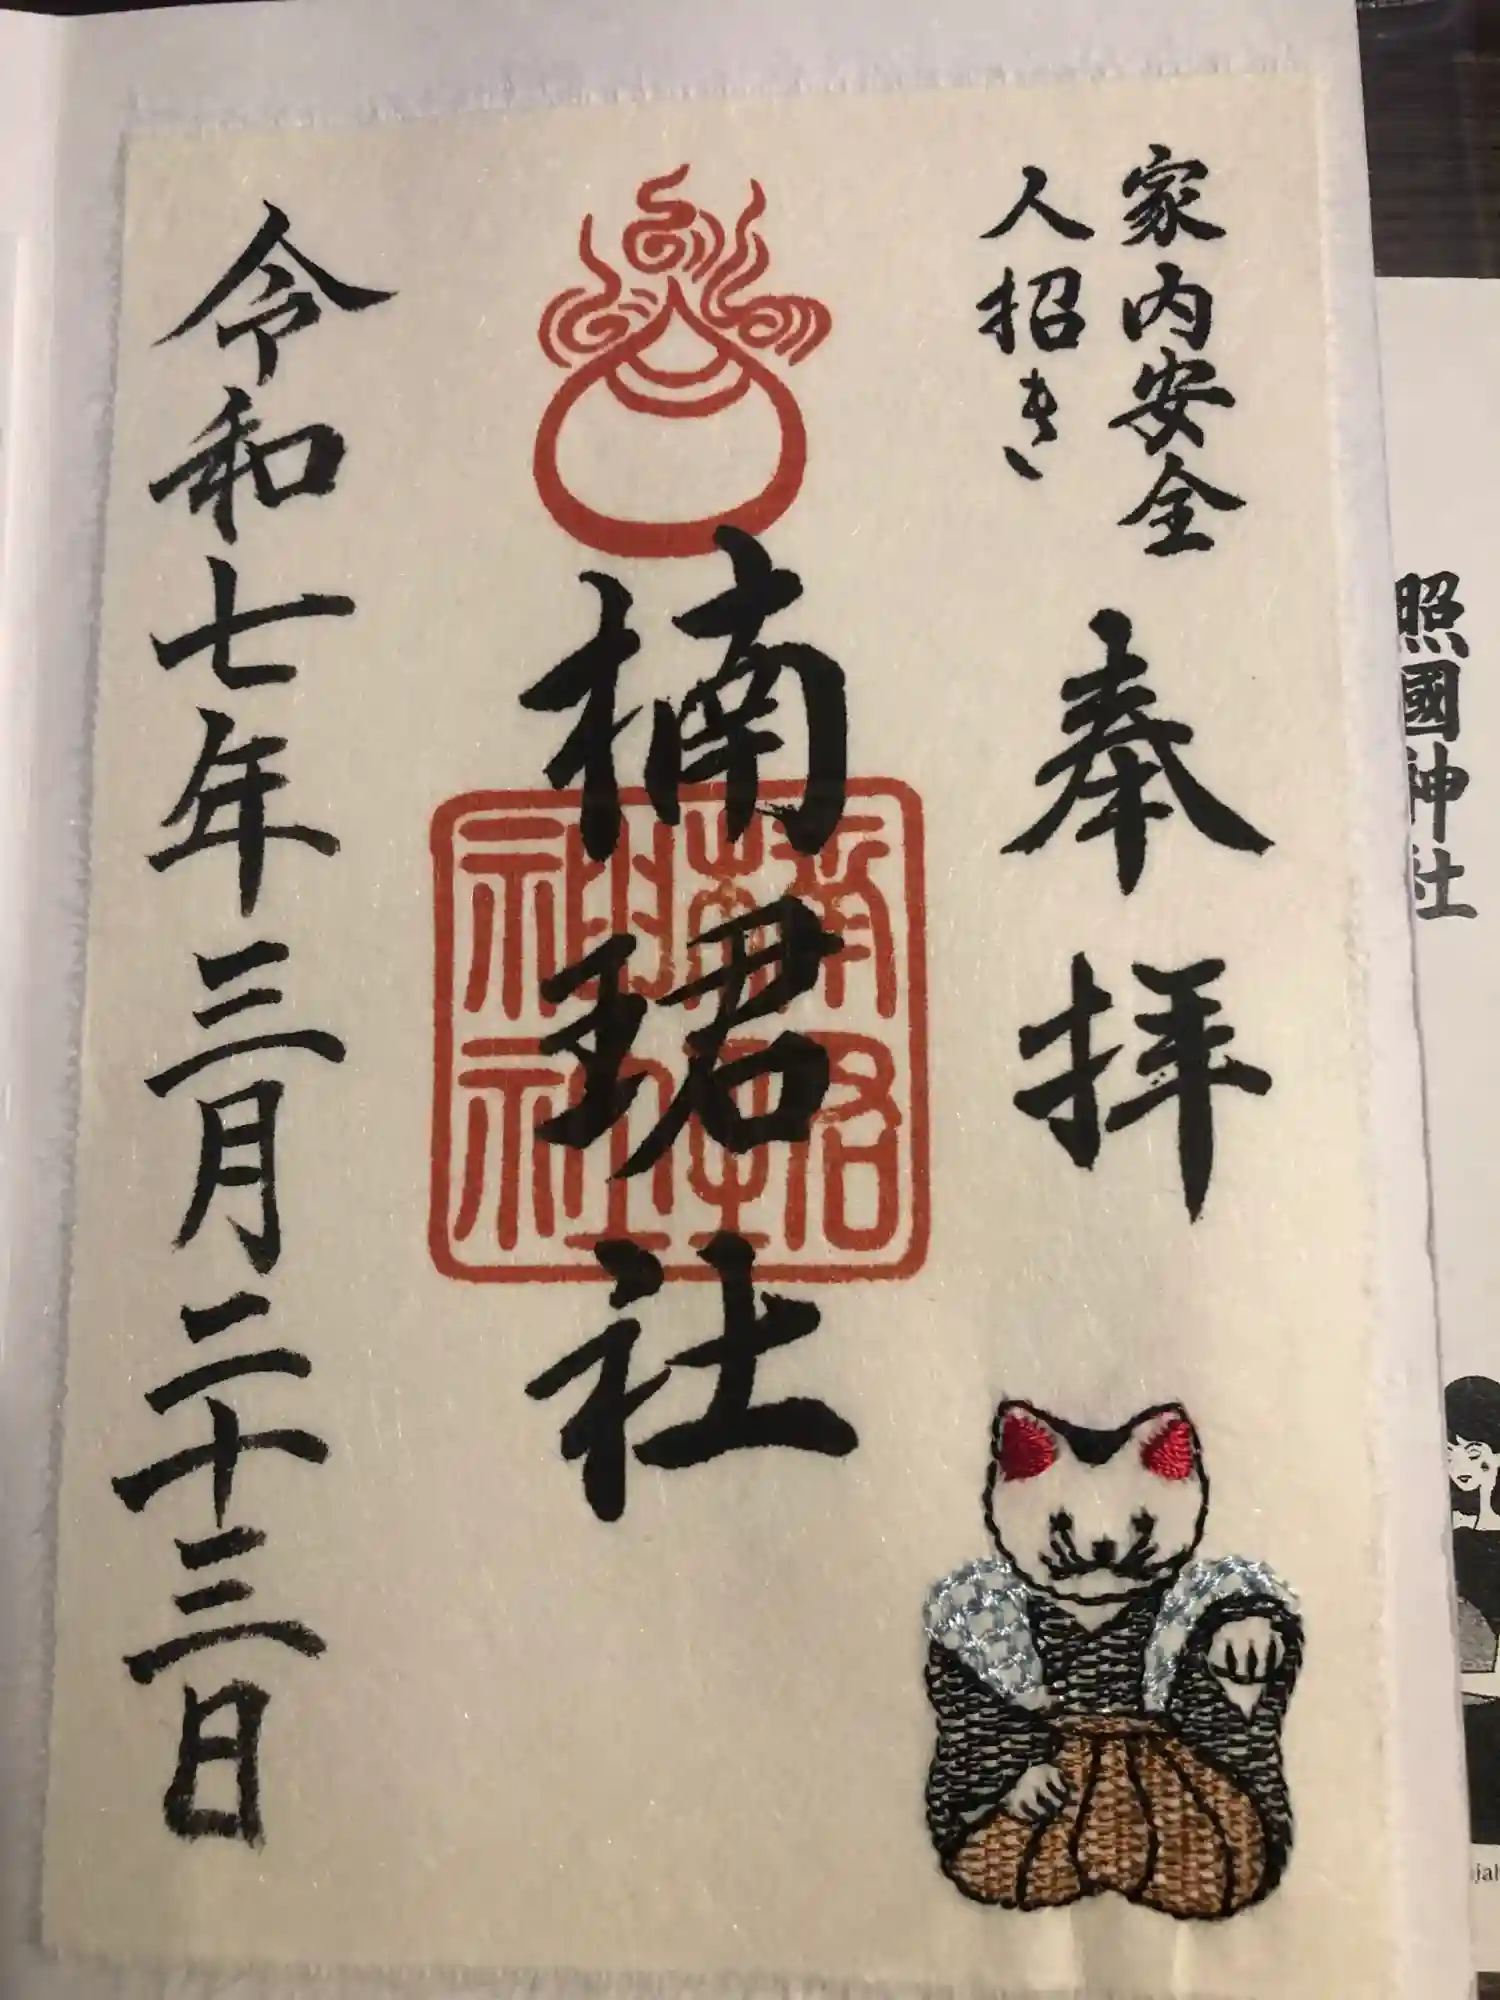 家内安全
人招き
奉拝
楠珺社
楠珺社神
令和七年三月二十三日
照國神社